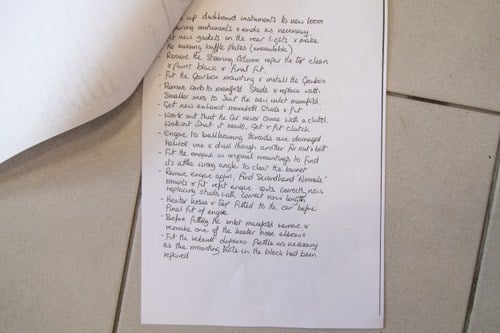 up dashboard instruments to new loom
instruments & ends as necessary
new gaskets in the rear lights & make
the missing baffle plates (unavailable)
- Remove the Steering Column refix the top clean
& paint black & final fit.
- Fit the Gearbox mounting & install the Gearbox
- Remove carb to manifold Studs & replace with
Smaller ones to Suit the new inlet manifold.
- Get new exhaust manifold Studs & fit
- Work out that the Car never came with a clutch
Work out what it needs, Get & fit clutch
- Engine to bellhousing threads are damaged
helicoil one & drill through another for nut & bolt.
- Fit the engine on original mountings to find
its at the wrong angle to clear the bonnet
- Remove engine again, find Secondhand
mounts & fit refit engine sits correctly, now
replacing studs with correct new length
- Heater hoses & tap fitted to the car before
final fit of engine
- Before fitting the inlet manifold remove &
remake one of the heater hose elbows
- Fit the rebuilt dynamo fettle as necessary
as the mounting hole in the block had been
repaired